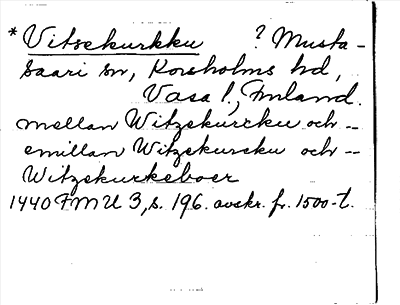 * Vitsekurkku ? Musta-
saari sn, Korsholms hd,
Vasa l., Finland.
mellan Witzekurcku och --
emillan Witzekurcku och --
Witzekurkeboer
1440 FMU 3, s. 196. avskr. fr. 1500-t.